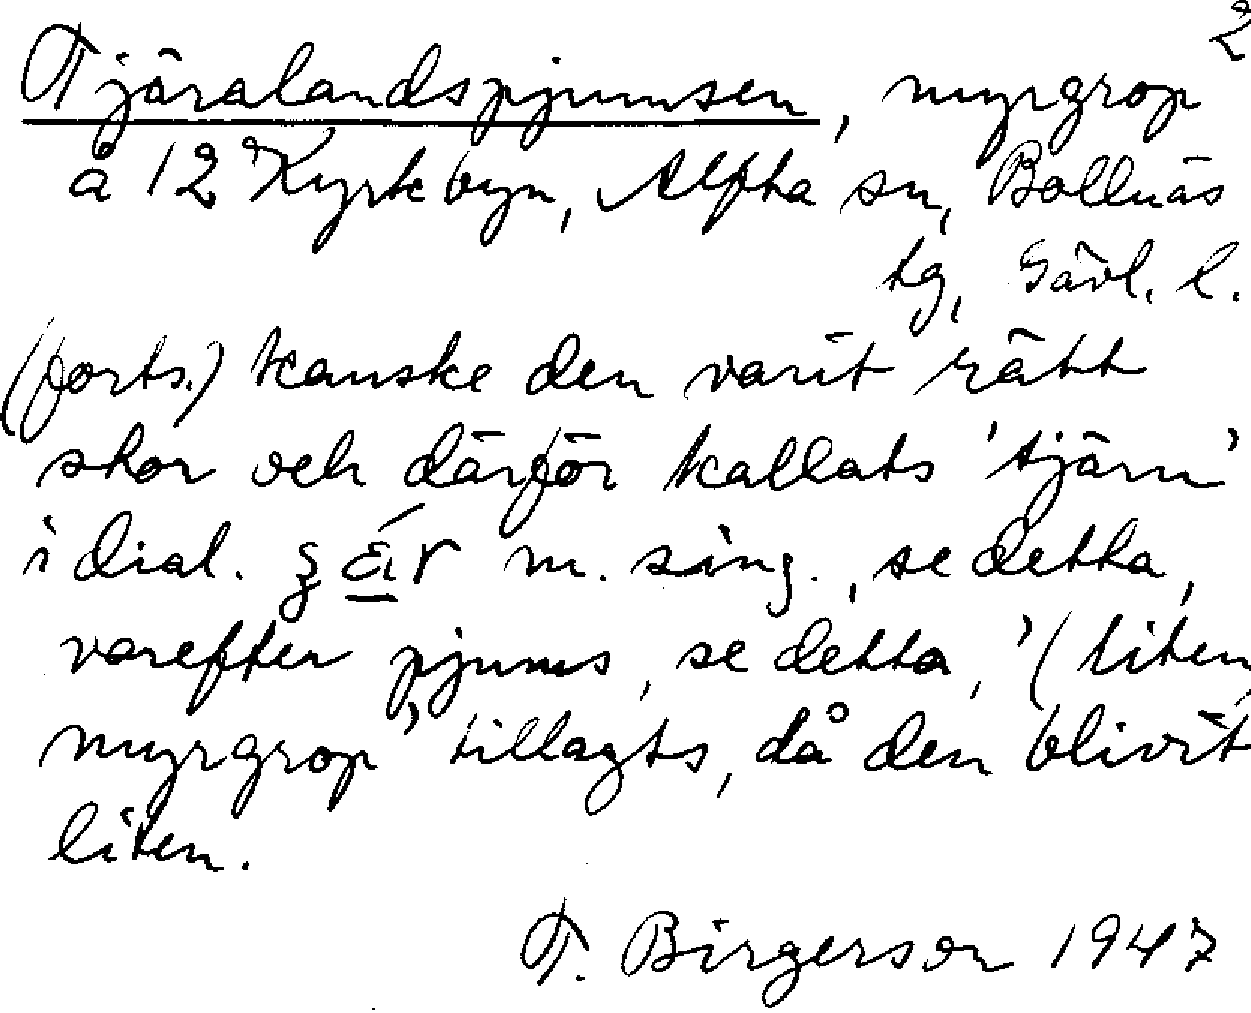 2
Tjäralandspjumsen, myrgrop
å 12 Kyrkbyn, Alfta sn, Bollnäs
tg, Gävl. l.
(forts.) kanske den varit rätt
stor och därför kallats 'tjärn'
i dial. m. sing., se detta,
varefter pjums, se detta, '(liten)
myrgrop' tillagts, då den blivit
liten.
T. Birgerson 1947